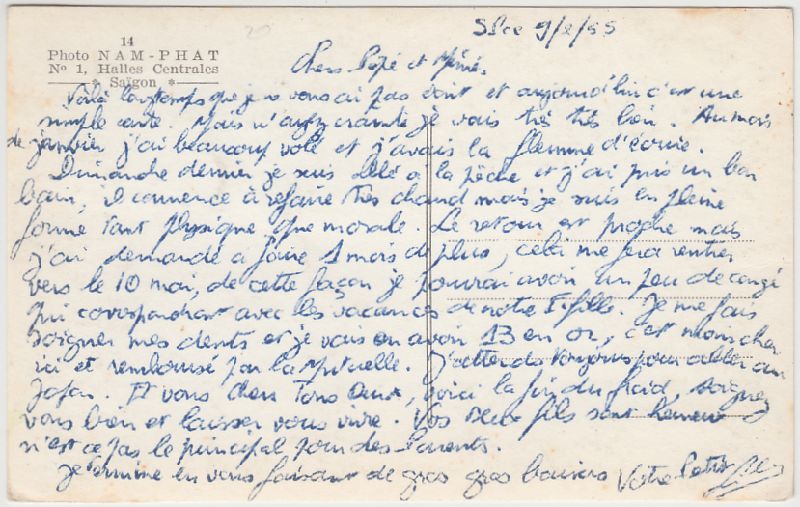 14
Photo NAM-PHAT
No 1, Halles Centrales
Saïgon
9/2/55
Chers Pépé et Mémé.
Voilà longtemps que je ne vous ai pas écrit et aujourd'hui c'est une
simple carte. Mais n'ayez crainte je vais très très bien. Au mois
de janvier j'ai beaucoup volé et j'avais la flemme d'écrire.
Dimanche dernier je suis allé à la pêche et j'ai pris un bon
bain, il commence à refaire très chaud mais je suis en pleine
forme tant physique que morale. Le retour est proche mais
j'ai demandé à faire 1 mois de plus, cela me fera rentrer
vers le 10 mai, de cette façon je pourrai avoir un peu de congé
qui correspondrait avec les vacances de notre fille. Je me fais
soigner mes dents et je vais en avoir 13 en or, c'est moins cher
ici et remboursé par la Mutuelle. J'attends toujours pour aller au
Japon. Et vous chers tous deux, voici la fin du froid, soignez
vous bien et laisser vous vivre. Vos deux fils sont heureux
n'est ce pas le principal pour des Parents.
Je termine en vous faisant de gros gros baisers Votre Petit